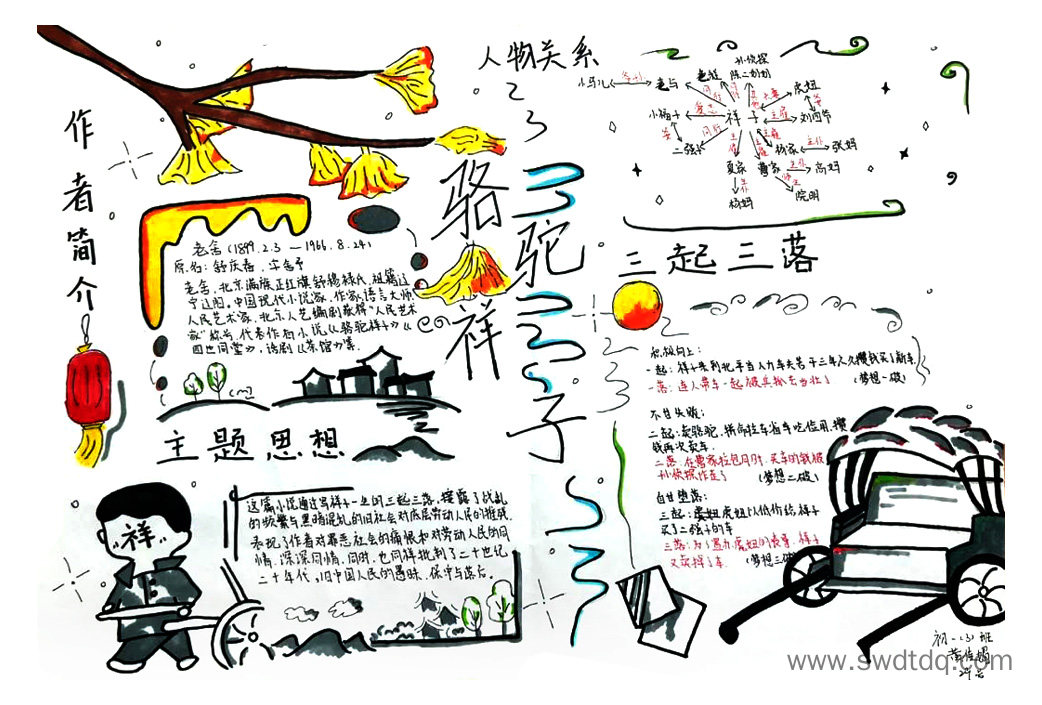 作者简介
骆驼祥子
人物关系
老舍(1899.2.3—1966.8.24)
原名:舒庆春,字舍予
老舍,北京满族正红旗舒穆禄氏,祖籍辽
宁辽阳,中国现代小说家、作家,语言大师、
人民艺术家,北京人艺编剧,获得“人民艺术
家”称号,代表作有小说《骆驼祥子》《
四世同堂》,话剧《茶馆》等.
主题思想
祥
这篇小说通过写祥子一生的三起三落,揭露了战乱
的频繁与黑暗混乱的旧社会对底层劳动人民的摧残.
表现了作者对罪恶社会的痛恨和对劳动人民的同
情,深深同情,同时,也同样批判了二十世纪
二十年代,旧中国人民的愚昧、保守与落后。
孙侦探
小马儿
老马
陈二奶奶
虎妞
小福子
祥子
刘四爷
二强子
夏家
曹家
杨家
张妈
高妈
杨妈
阮明
三起三落
积极向上:
一起:祥子来到北平当人力车夫苦干三年,攒钱买了新车.
一落:连人带车一起被兵抢去当壮丁
(梦想一破)
不甘失败:
二起:卖骆驼,拼命拉车省吃俭用,攒
钱再次卖车.
二落:在曹家拉包月时,买车的钱被
孙侦探诈走了
(梦想二破)
自甘堕落:
三起:虎妞以低价给祥子
买了二强子的车
三落:为了置办虎妞的丧事,祥子
又卖掉了车.
(梦想三破)
初一(3)班
www.swdtdq.com